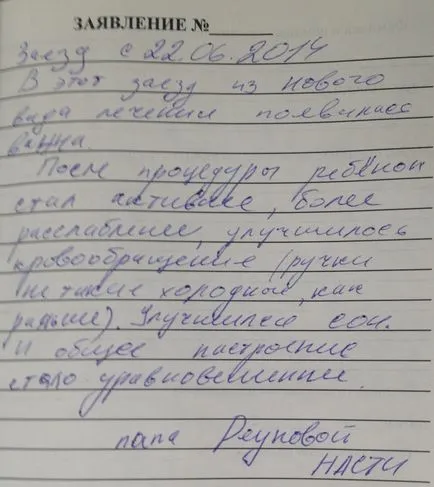 ЗАЯВЛЕНИЕ №
Заезд с 22.06.2014
В этот заезд из нового
вида лечения появилась
ванна.
После процедуры ребёнок
стал активнее, более
расслабление, улучшилось
кровообращение (ручки
не такие холодные, как
раньше). Улучшился сон.
И общее настроение
стало уравновешенние.
папа Реуновой
НАСТИ